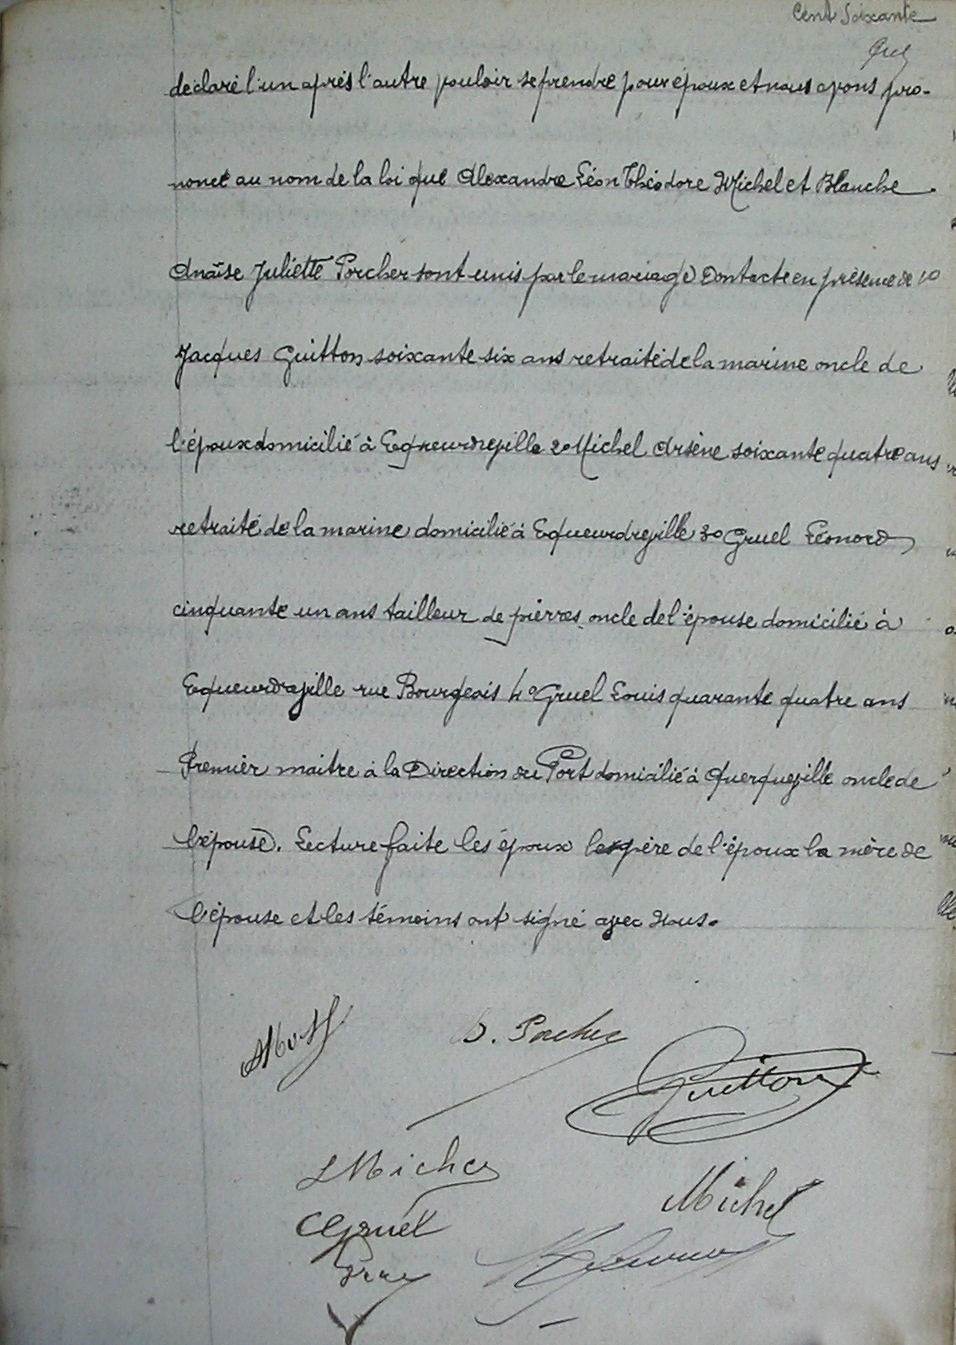 Cent Soixante
déclaré l'un après l'autre vouloir se prendre pour époux et nous avons pro-
noncé au nom de la loi que Alexandre Léon Théodore Michel et Blanche
Anaïse Juliette Porcher sont unis par le mariage Dont acte en présence de 1o
Jacques Guitton soixante six ans retraité de la marine oncle de
l'époux domicilié à Equeurdreville 2o Michel Arsène soixante quatre ans
retraité de la marine domicilié à Equeurdreville 3o Gruel Léonord
cinquante un ans tailleur de pierres oncle de l'épouse domicilié à
Equeurdreville rue Bourgeois 4o Gruel Louis quarante quatre ans
Premier maitre à la Direction du Port domicilié à Querqueville oncle de
l'épouse. Lecture faite les époux le père de l'époux la mère de
l'épouse et les témoins ont signé avec Nous.
B. Porcher
Guitton
LMichel
Michel
Gruel